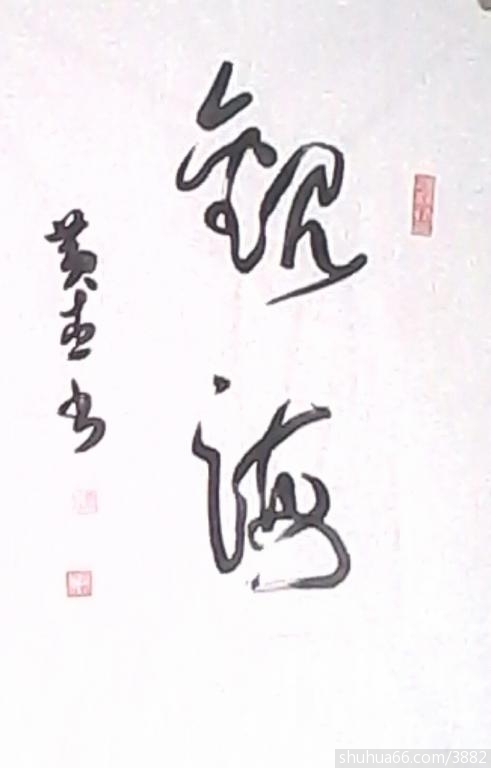 觀海
黄志书
shuhua66.com/3882